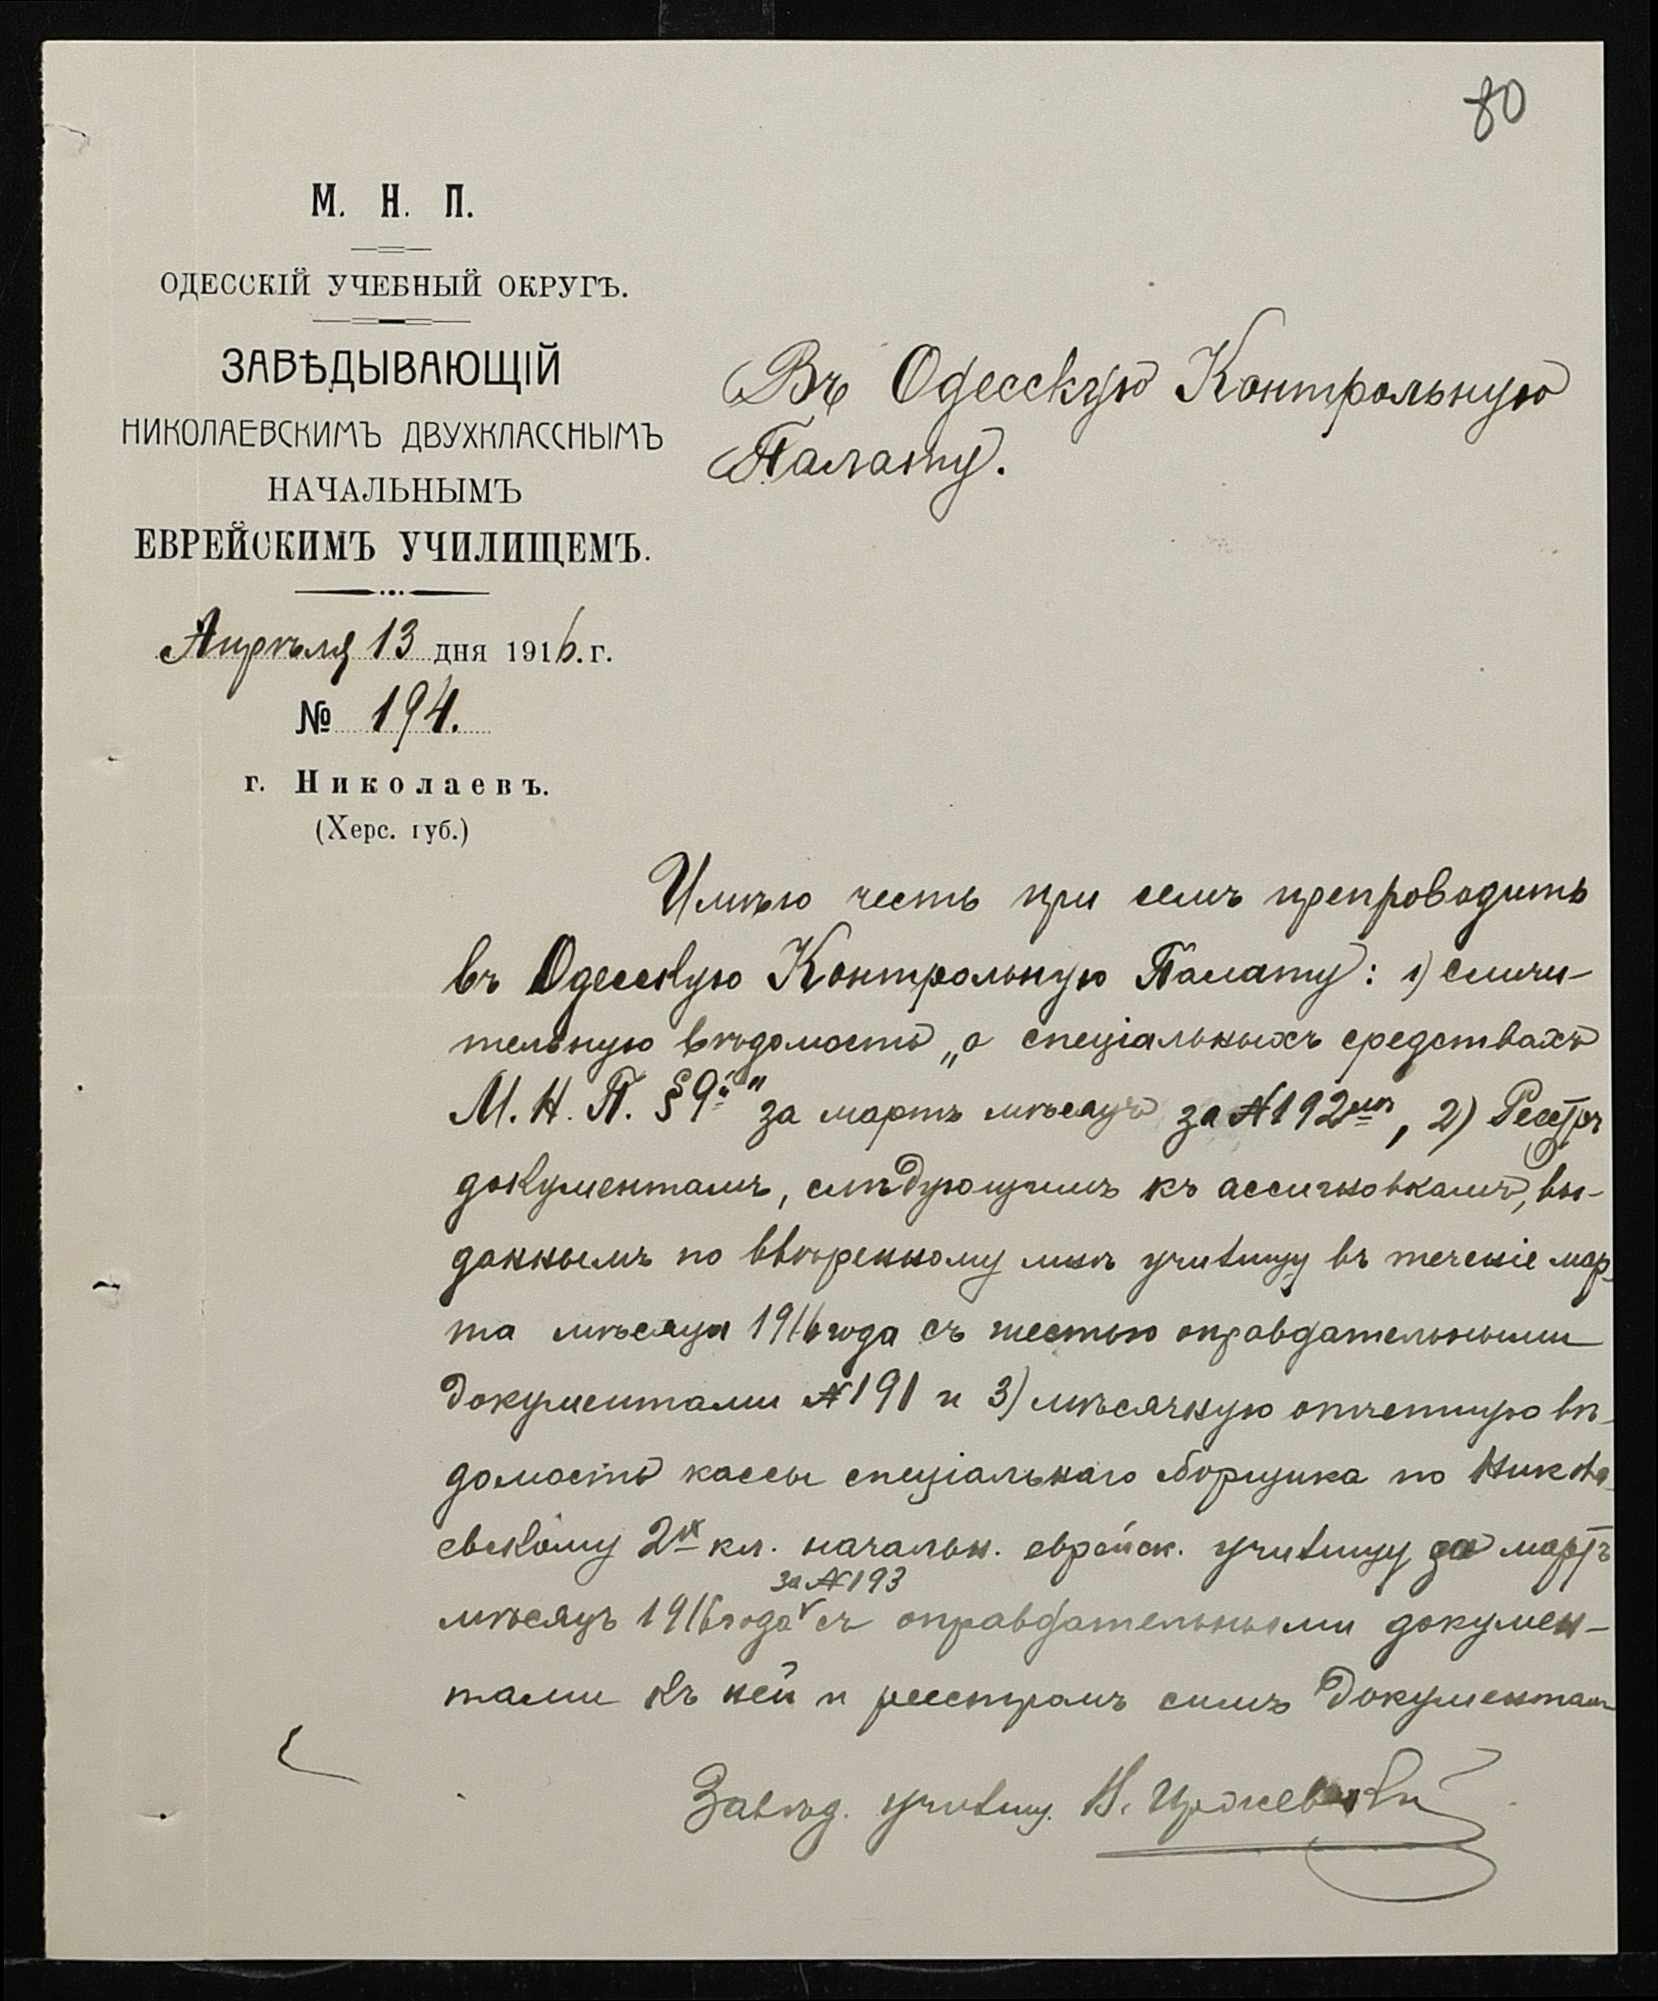 80
М. Н. П.
ОДЕССКІЙ УЧЕБНЫЙ ОКРУГЪ.
ЗАВѢДЫВАЮЩІЙ
НИКОЛАЕВСКИМЪ ДВУХКЛАССНЫМЪ
НАЧАЛЬНЫМЪ
ЕВРЕЙСКИМЪ УЧИЛИЩЕМЪ.
Апрѣля 13 дня 1916. г.
№ 194.
г. Николаевъ.
(Херс. губ.)
Въ Одесскую Контрольную
Палату.
Имѣю честь при семъ препроводить
въ Одесскую Контрольную Палату: 1) сличи-
тельную вѣдомость „о спеціальныхъ средствахъ
М. Н. П. § 9й" за мартъ мѣсяцъ за №192мъ, 2) Реестръ
документамъ, слѣдующимъ къ ассигновкамъ, вы-
даннымъ по ввѣренному мнѣ училищу въ теченіе мар-
та мѣсяца 1916 года съ шестью оправдательными
документами №191 и 3) мѣсячную отчетную вѣ-
домость кассы спеціальнаго сборщика по Никола-
евскому 2х кл. начальн. еврейск. училищу за мартъ
за №193
мѣсяцъ 1916 года съ оправдательными докумен-
тами къ ней и реестромъ симъ документамъ
Завѣд. училищ.